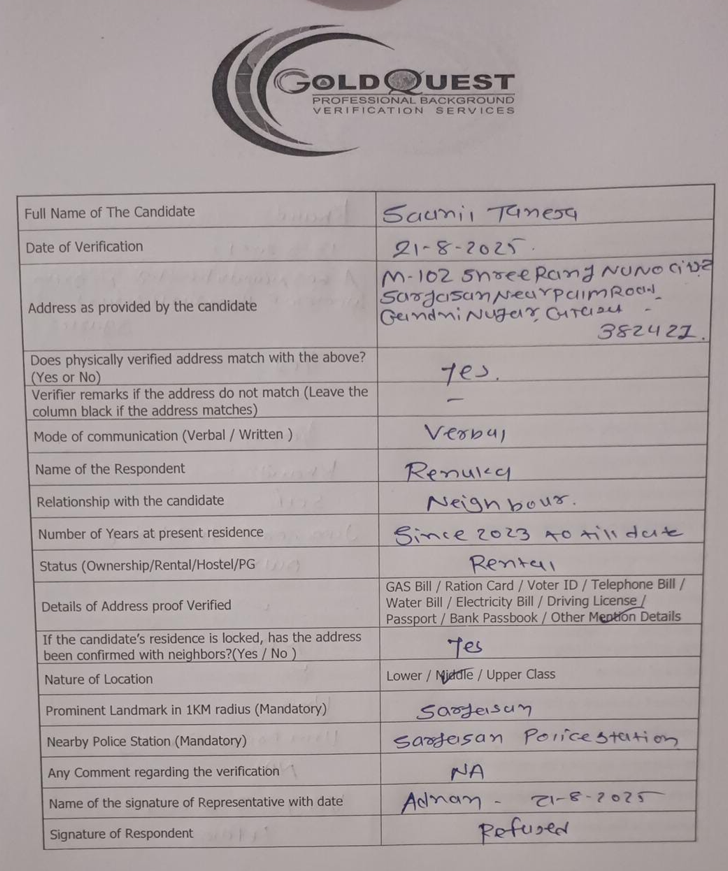 GOLDQUEST
PROFESSIONAL BACKGROUND
VERIFICATION SERVICES
Full Name of The Candidate Saunil Taneja
Date of Verification 21-8-2025.
Address as provided by the candidate M-102 Shree Rang
Sargasan Near Palm Road
Gandhi Nugar,
382421.
Does physically verified address match with the above?
(Yes or No) Yes.
Verifier remarks if the address do not match (Leave the
column black if the address matches) -
Mode of communication (Verbal / Written ) Verbal
Name of the Respondent Renuka
Relationship with the candidate Neighbour.
Number of Years at present residence Since 2023 to till date
Status (Ownership/Rental/Hostel/PG Rental
Details of Address proof Verified GAS Bill / Ration Card / Voter ID / Telephone Bill /
Water Bill / Electricity Bill / Driving License /
Passport / Bank Passbook / Other Mention Details
If the candidate's residence is locked, has the address
been confirmed with neighbors?(Yes / No ) Yes
Nature of Location Lower / Middle / Upper Class
Prominent Landmark in 1KM radius (Mandatory) Sargasan
Nearby Police Station (Mandatory) Sargasan Police Station
Any Comment regarding the verification NA
Name of the signature of Representative with date Adnan - 21-8-2025
Signature of Respondent Refused